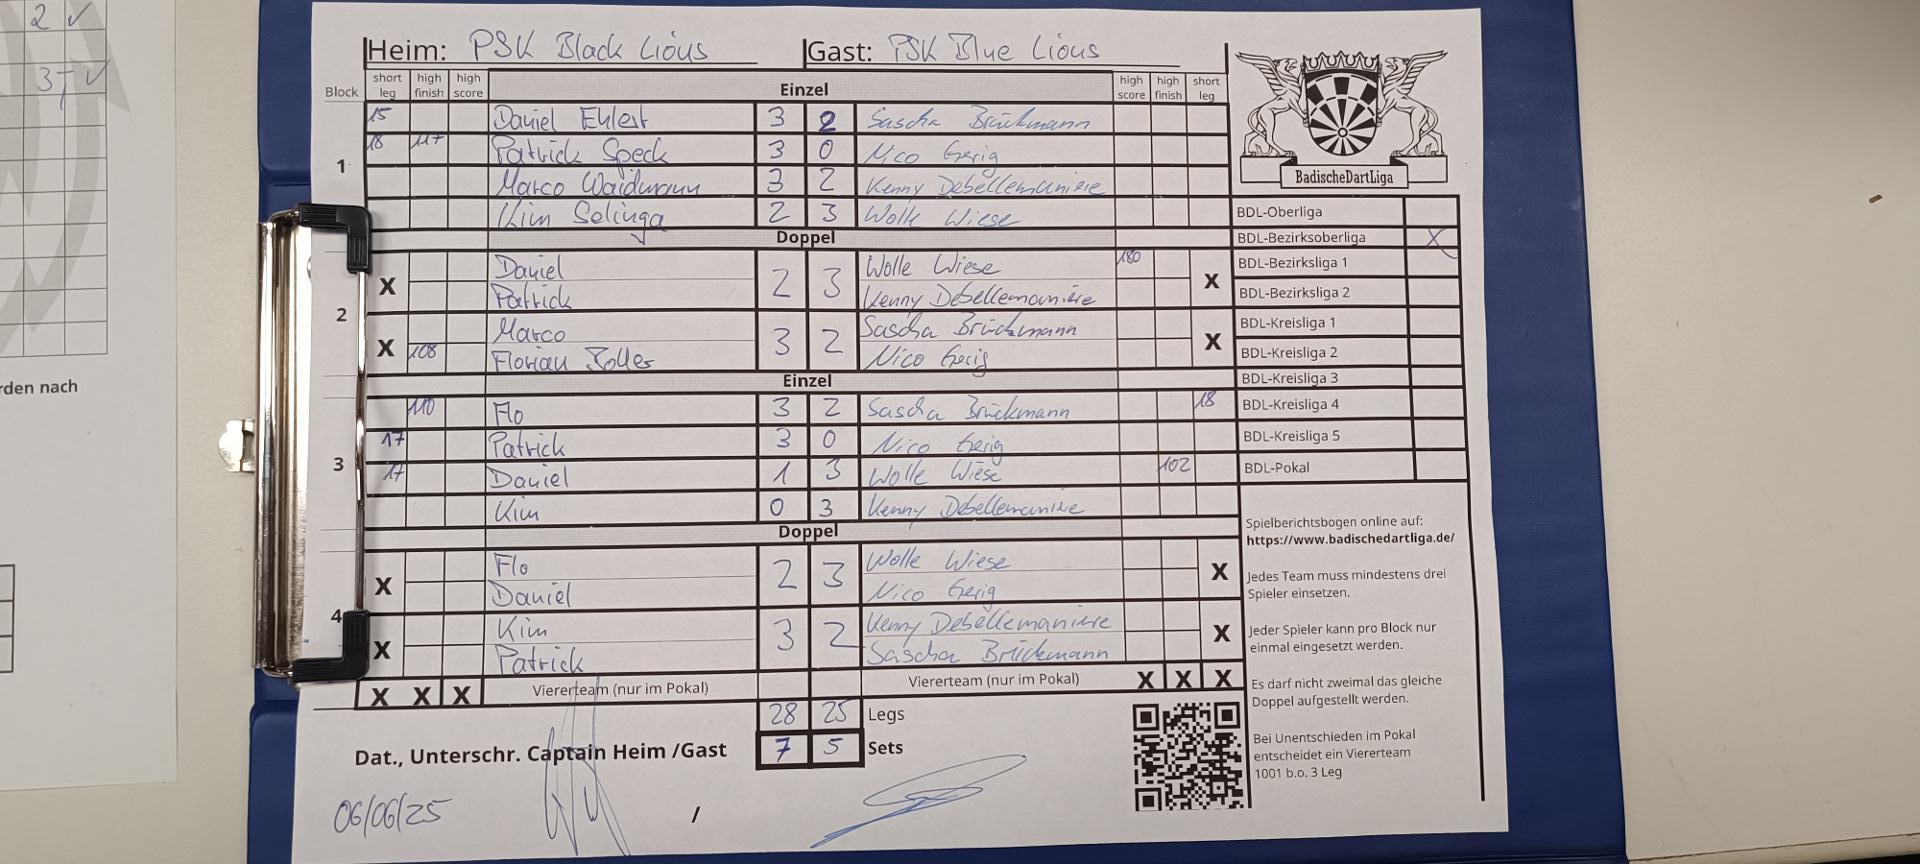 2 ✓
3 ✓
rden nach
Heim: PSK Black Lions Gast: PSK Blue Lions
Block short leg high finish high score Einzel high score high finish short leg
15 Daniel Ehlert 3 2 Sascha Brückmann
1 18 117 Patrick Speck 3 0 Nico Gerig
Marco Waidmann 3 2 Kenny Debellemanière
Kim Selinga 2 3 Wolle Wiese
Doppel
2 X Daniel 2 3 Wolle Wiese 180 X
Patrick Kenny Debellemanière
X Marco 3 2 Sascha Brückmann X
108 Florian Roller Nico Gerig
Einzel
3 110 Flo 3 2 Sascha Brückmann 18
17 Patrick 3 0 Nico Gerig
17 Daniel 1 3 Wolle Wiese 102
Kim 0 3 Kenny Debellemanière
Doppel
4 X Flo 2 3 Wolle Wiese X
Daniel Nico Gerig
X Kim 3 2 Kenny Debellemanière X
Patrick Sascha Brückmann
X X X Viererteam (nur im Pokal) Viererteam (nur im Pokal) X X X
28 25 Legs
7 5 Sets
Dat., Unterschr. Captain Heim /Gast
06/06/25 /
BadischeDartLiga
BDL-Oberliga
BDL-Bezirksoberliga X
BDL-Bezirksliga 1
BDL-Bezirksliga 2
BDL-Kreisliga 1
BDL-Kreisliga 2
BDL-Kreisliga 3
BDL-Kreisliga 4
BDL-Kreisliga 5
BDL-Pokal
Spielberichtsbogen online auf:
https://www.badischedartliga.de/
Jedes Team muss mindestens drei
Spieler einsetzen.
Jeder Spieler kann pro Block nur
einmal eingesetzt werden.
Es darf nicht zweimal das gleiche
Doppel aufgestellt werden.
Bei Unentschieden im Pokal
entscheidet ein Viererteam
1001 b.o. 3 Leg